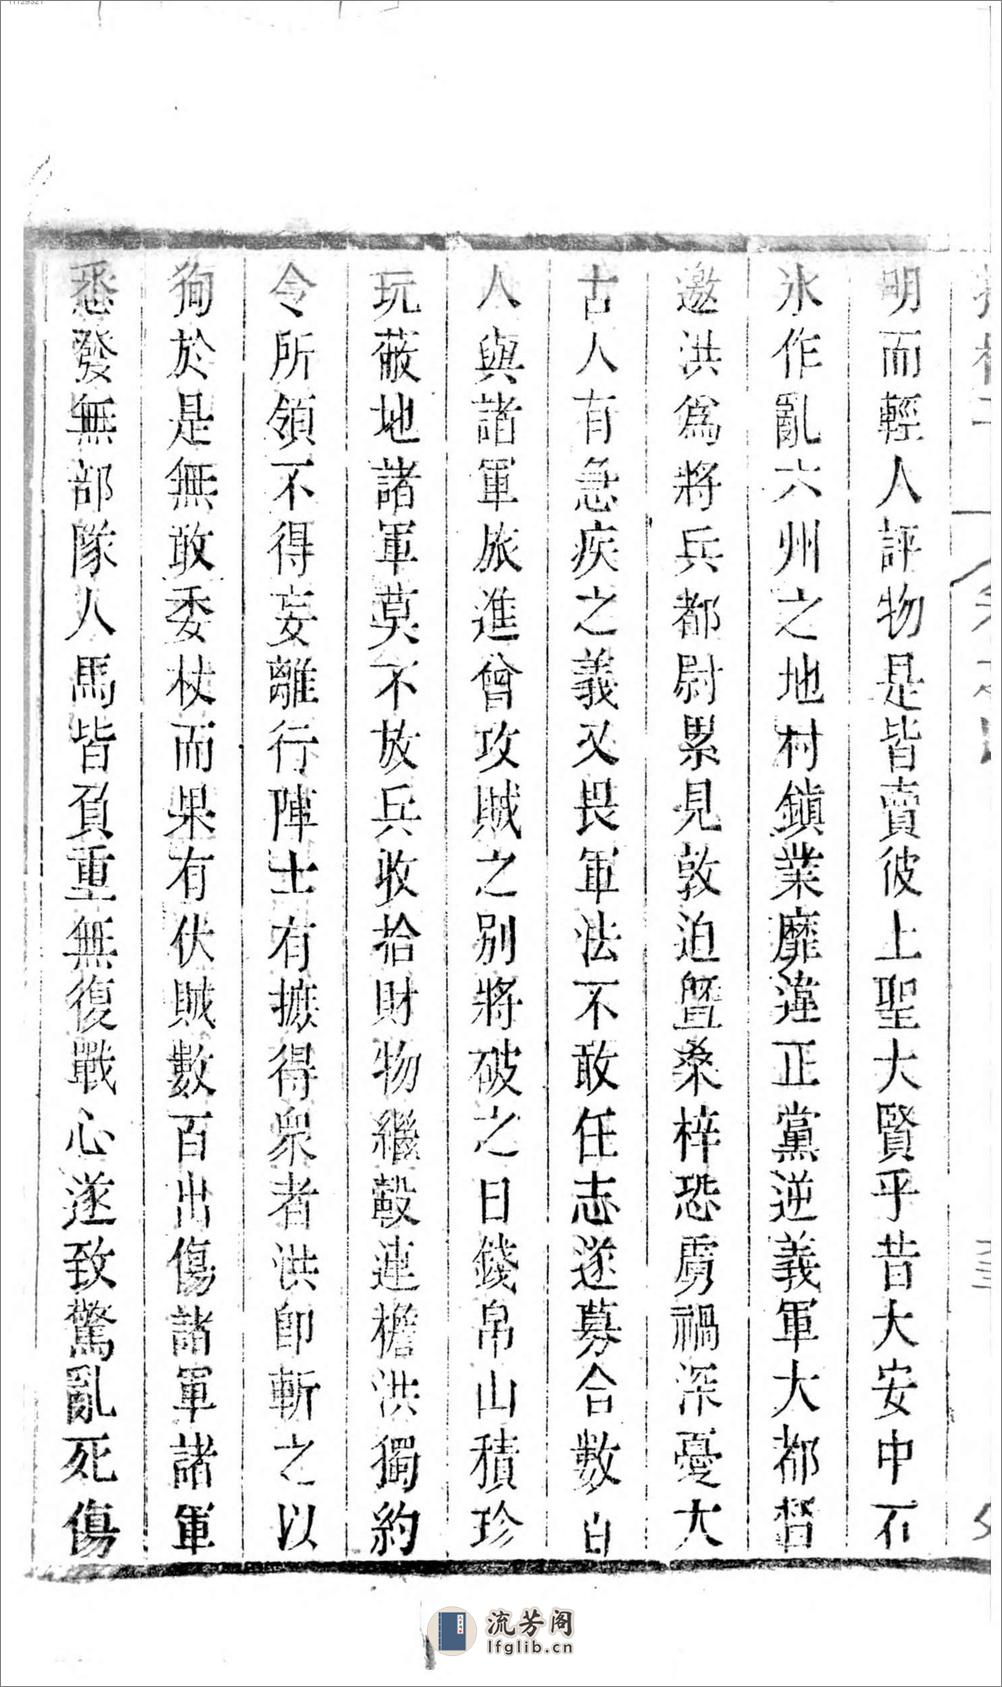 明而輕人評物是皆賣彼上聖大賢乎昔大安中石
氷作亂六州之地村鎮業靡違正黨逆義軍大都督
邀洪爲將兵都尉累見敦迫曁桑梓恐虜禍深憂大
古人有急疾之義又畏軍法不敢任志遂募合數百
人與諸軍旅進曾攻賊之别將破之日錢帛山積珍
玩蔽地諸軍莫不放兵收拾財物繼轂連檐洪獨約
令所領不得妄離行陣士有摭得衆者洪卽斬之以
狥於是無敢委杖而果有伏賊數百出傷諸軍諸軍
悉發無部隊人馬皆負重無復戰心遂致驚亂死傷
流芳阁
lfglib.cn